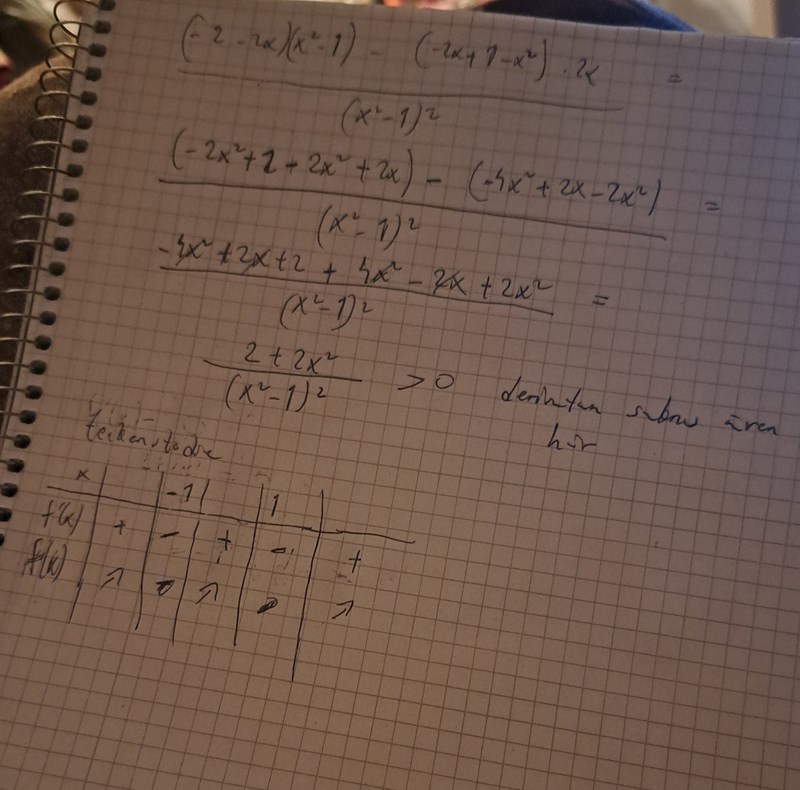 (-2-2x)(x²-1) - (-2x+1-x²)·2x =
(x²-1)²
(-2x²+2+2x²+2x) - (-4x²+2x-2x²) =
(x²-1)²
-4x²+2x+2 + 4x²-2x+2x² =
(x²-1)²
2+2x²
(x²-1)² >0 derivatan saknas även
här
teckenstudie
x -1 1
f'(x) + - + - +
f(x) ↗ ↗ ↗